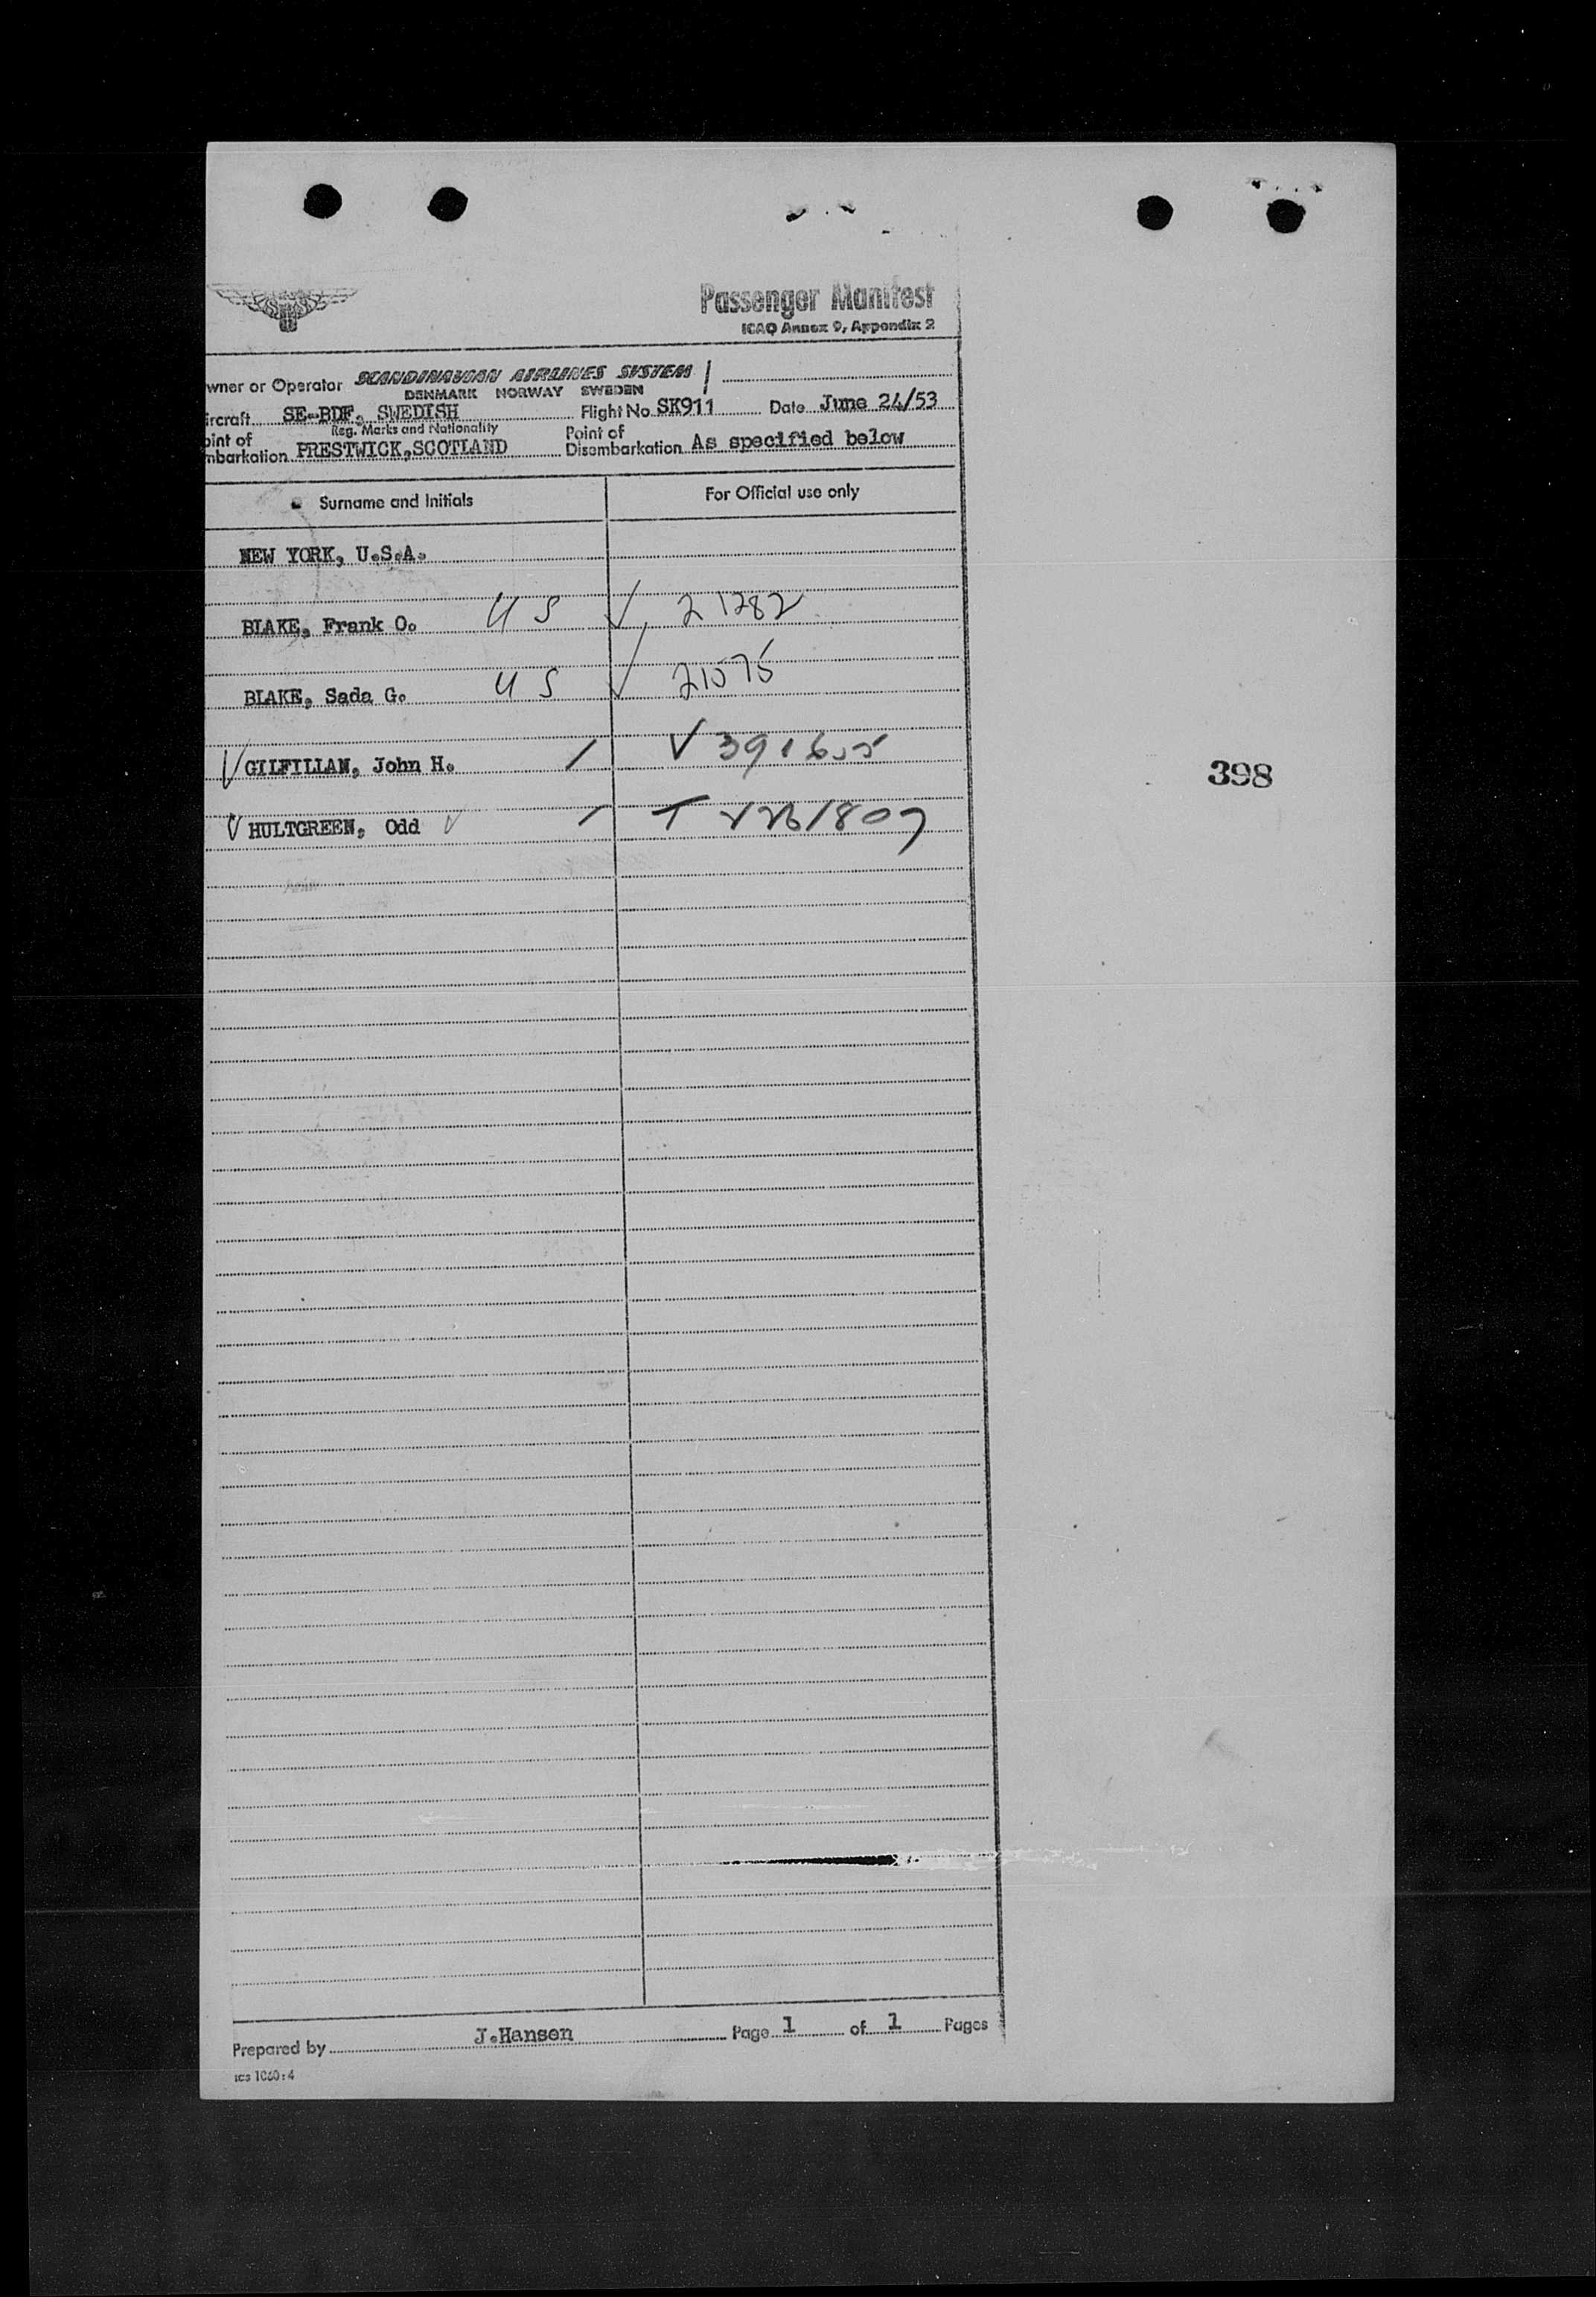 Passenger Manifest
ICAO Annex 9, Appendix 2
wner or Operator SCANDINAVIAN AIRLINES SYSTEM
DENMARK NORWAY SWEDEN
ircraft SE-BDF, SWEDISH Flight No SK911 Date June 24/53
Reg. Marks and Nationality
oint of mbarkation PRESTWICK, SCOTLAND Point of Disembarkation As specified below
Surname and Initials For Official use only
NEW YORK, U.S.A.
BLAKE, Frank O. U S ✓ 21282
BLAKE, Sada G. U S ✓ 21575
✓ GILFILLAN, John H. / V 391655
398
✓ HULTGREEN, Odd ✓ / T
Prepared by J.Hansen Page 1 of 1 Pages
ICS 1060:4